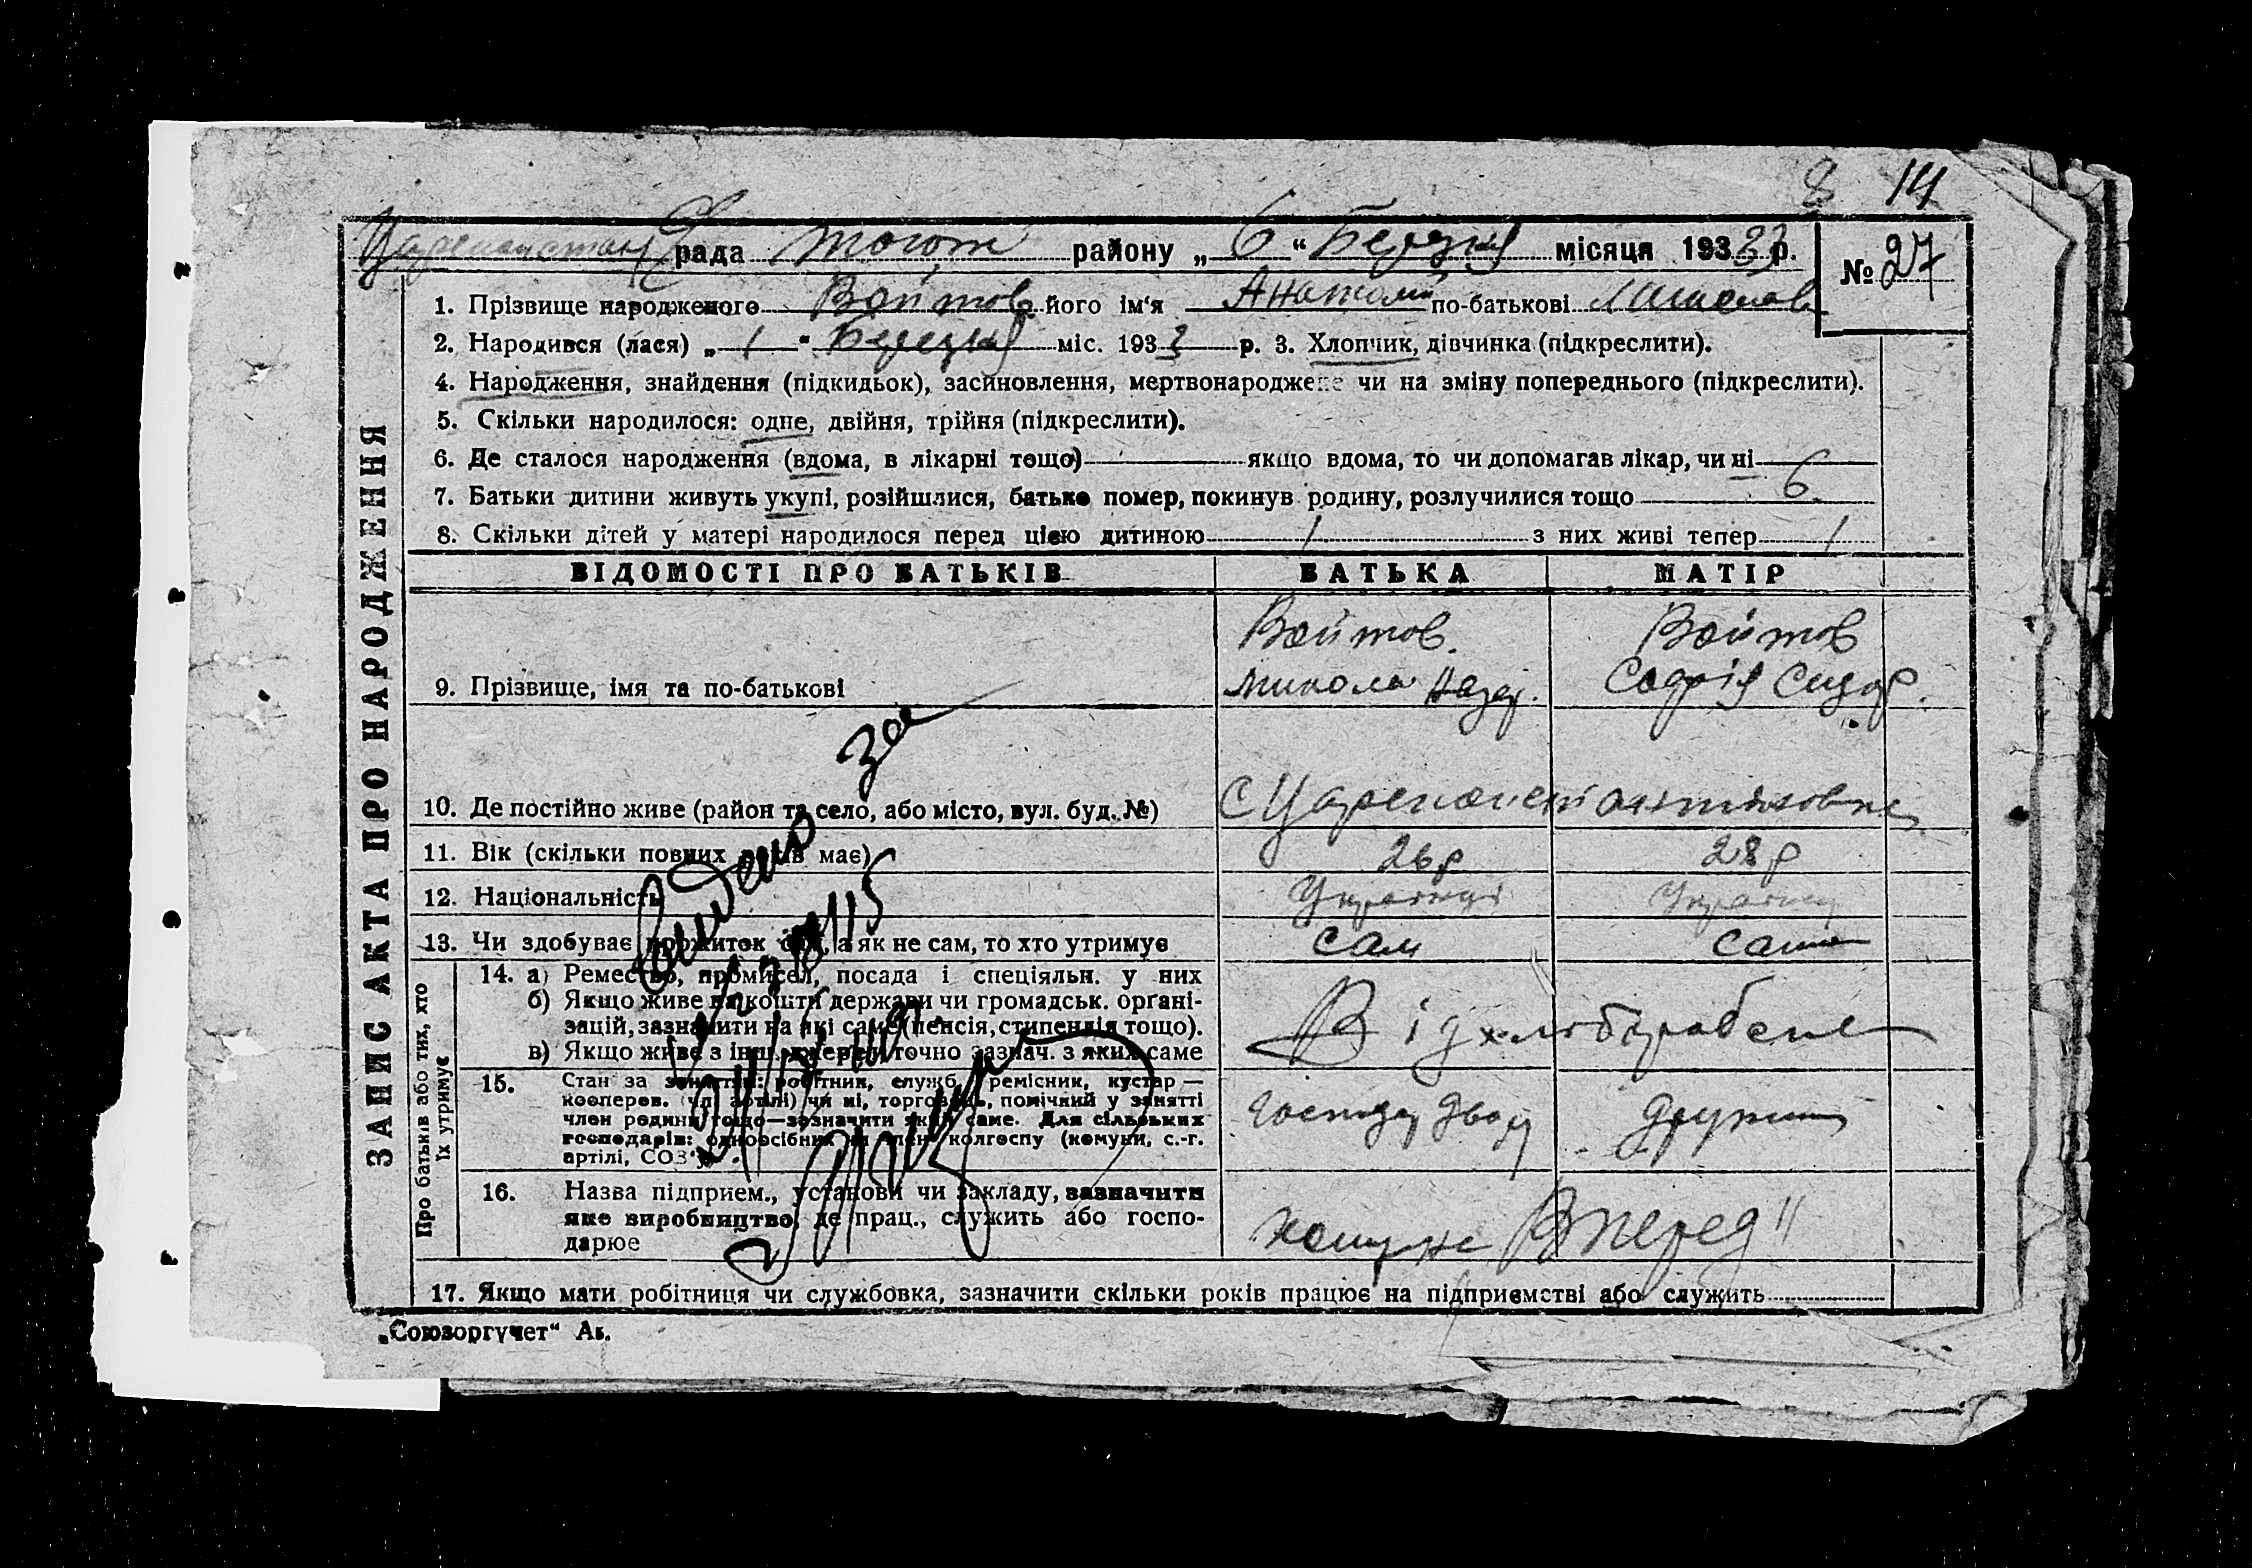 8 14
рада тогож району „ 6 “ Березня місяця 1933 р. № 27
1. Прізвище народженого Войтов його ім‘я Анатолій по-батькові
2. Народився (лася) „ 1 “ Березня міс. 1933 р. 3. Хлопчик, дівчинка (підкреслити).
4. Народження, знайдення (підкидьок), засиновлення, мертвонароджене чи на зміну попереднього (підкреслити).
5. Скільки народилося: одне, двійня, трійня (підкреслити).
6. Де сталося народження (вдома, в лікарні тощо) якщо вдома, то чи допомагав лікар, чи ні
7. Батьки дитини живуть укупі, розійшлися, батько помер, покинув родину, розлучилися тощо б.
8. Скільки дітей у матері народилося перед цією дитиною 1 з них живі тепер 1
ЗАПИС АКТА ПРО НАРОДЖЕННЯ
ВІДОМОСТІ ПРО БАТЬКІВ БАТЬКА МАТІР
Войтов. Войтов
9. Прізвище, імя та по-батькові Микола Назар. Софія Сидор.
10. Де постійно живе (район та село, або місто, вул. буд. №) с
11. Вік (скільки повних років має) 26 р 28 р
12. Національність
13. Чи здобуває прожиток сам, а як не сам, то хто утримує сам сама
Про батьків або тих, хто їх утримує
14. а) Ремество, промисел, посада і спеціяльн. у них
б) Якщо живе на кошти держави чи громадськ. органі-
зацій, зазначити на які саме (пенсія, стипендія тощо).
в) Якщо живе з інш. джерел точно зазнач. з яких саме
Від хлібороба
15. Стан за заняттям: робітник, служб., ремісник, кустар —
кооперов. (чл. артілі) чи ні, торговець, помічний у занятті
член родини тощо—зазначити який саме. Для сільських
господарів: одноосібник чи член колгоспу (комуни, с.-г.
артілі, СОЗ‘у).
Господ двору дружина
16. Назва підприєм., установи чи закладу, зазначити
яке виробництво, де прац., служить або госпо-
дарює
комуна Вперед"
17. Якщо мати робітниця чи службовка, зазначити скільки років працює на підприємстві або служить
„Союзоргучет“ Ак.